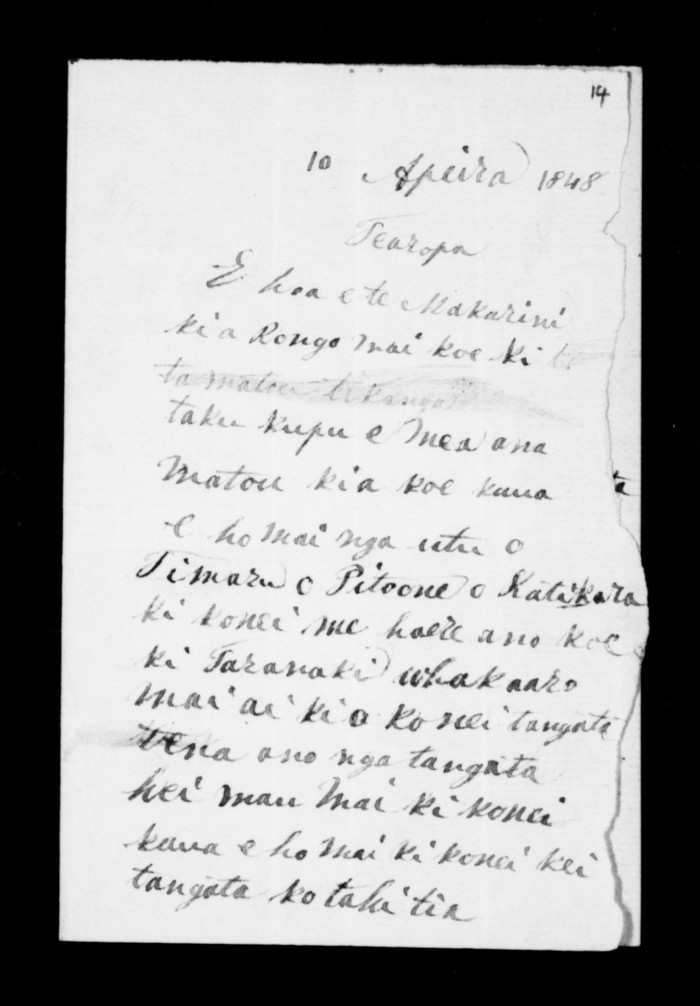 14
10 Apeira 1848
Tearopa
E hoa e te Makarini
ki a Rongo mai koe ki
ta matou tikanga
taku kupu e mea ana
matou kia koe kaua
e ho mai nga utu o
Timaru o Pitoone o Katikara
ki konei me haere ano koe
ki Taranaki whakaaro
mai ai ki o ko nei tangata
tena ano nga tangata
hei mau mai ki konei
kaua e ho mai ki konei kei
tangata ko tahi tia